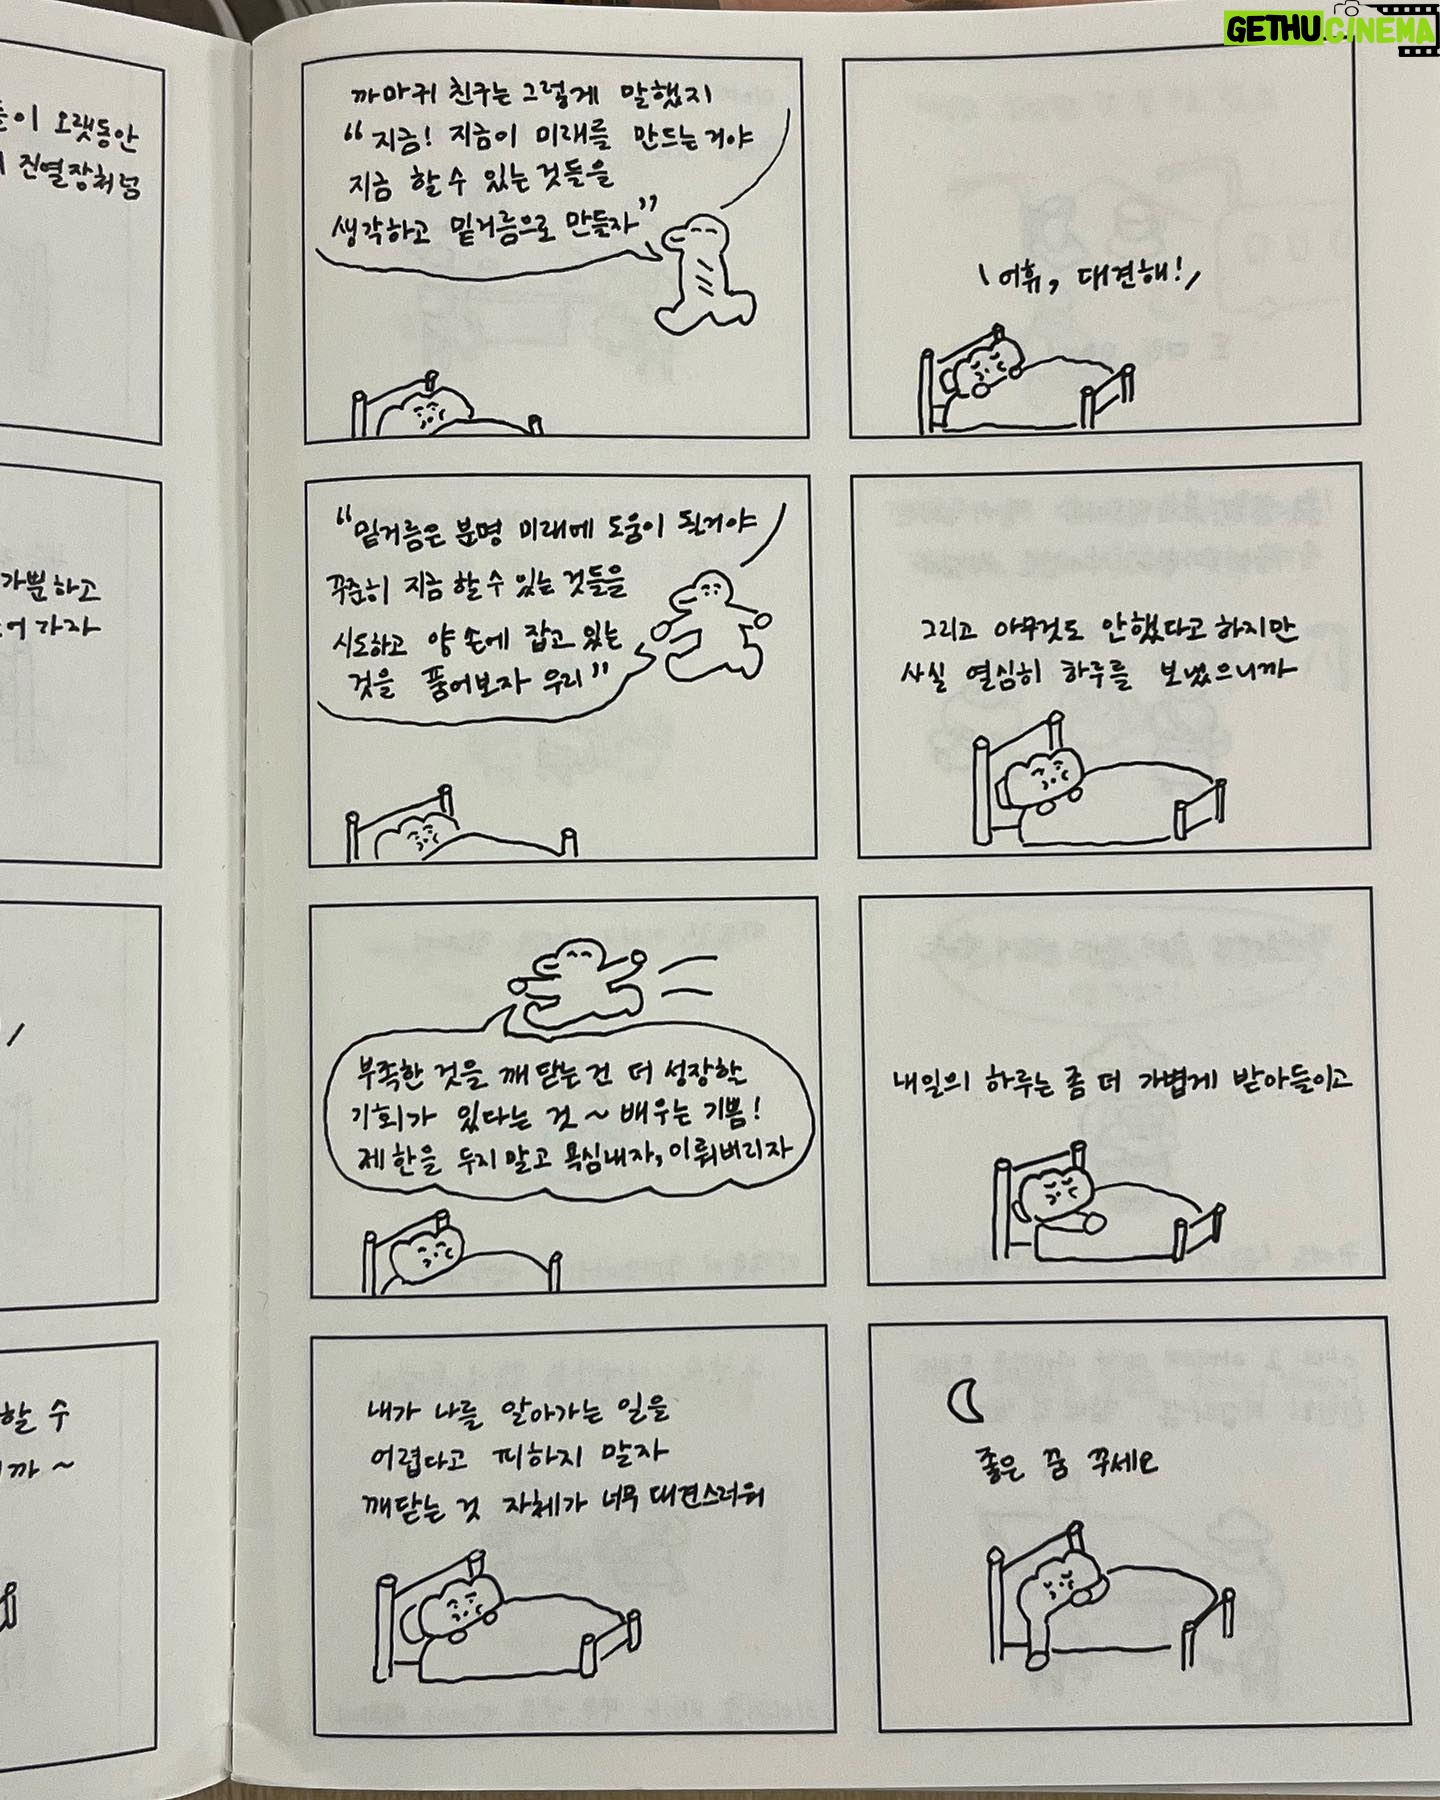 GETHUCINEMA
들이 오랫동안
진열장처럼
가뿐하고
가자
할 수
까~
까마귀 친구는 그렇게 말했지
“지금! 지금이 미래를 만드는거야
지금 할 수 있는 것들을
생각하고 밑거름으로 만들자”
“밑거름은 분명 미래에 도움이 될거야
꾸준히 지금 할 수 있는 것들을
시도하고 양 손에 잡고 있는
것을 품어보자 우리”
부족한 것을 깨닫는건 더 성장할
기회가 있다는 것~ 배우는 기쁨!
제한을 두지 말고 욕심내자, 이뤄버리자
내가 나를 알아가는 일을
어렵다고 피하지 말자
깨닫는 것 자체가 너무 대견스러워
어휴, 대견해!
그리고 아무것도 안했다고 하지만
사실 열심히 하루를 보냈으니까
내일의 하루는 좀 더 가볍게 받아들이고
좋은 꿈 꾸세요